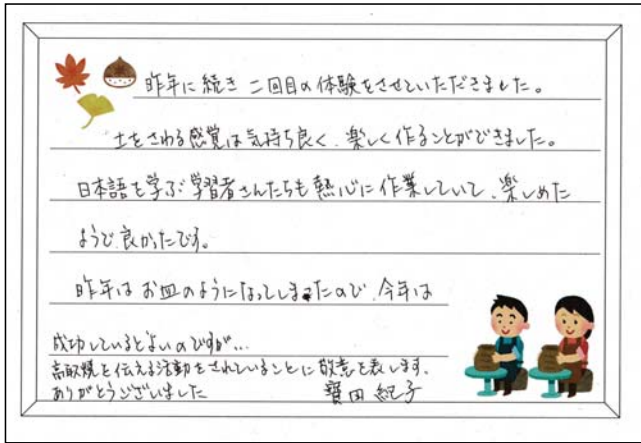 昨年に続き 二回目の体験をさせていただきました。
土をさわる感覚は気持ち良く、楽しく作ることができました。
日本語を学ぶ学習者さんたちも熱心に作業していて、楽しめた
ようで良かったです。
昨年はお皿のようになってしまったので、今年は
成功しているとよいのですが…
高取焼を伝える活動をされていることに敬意を表します。
ありがとうございました 寳田 紀子